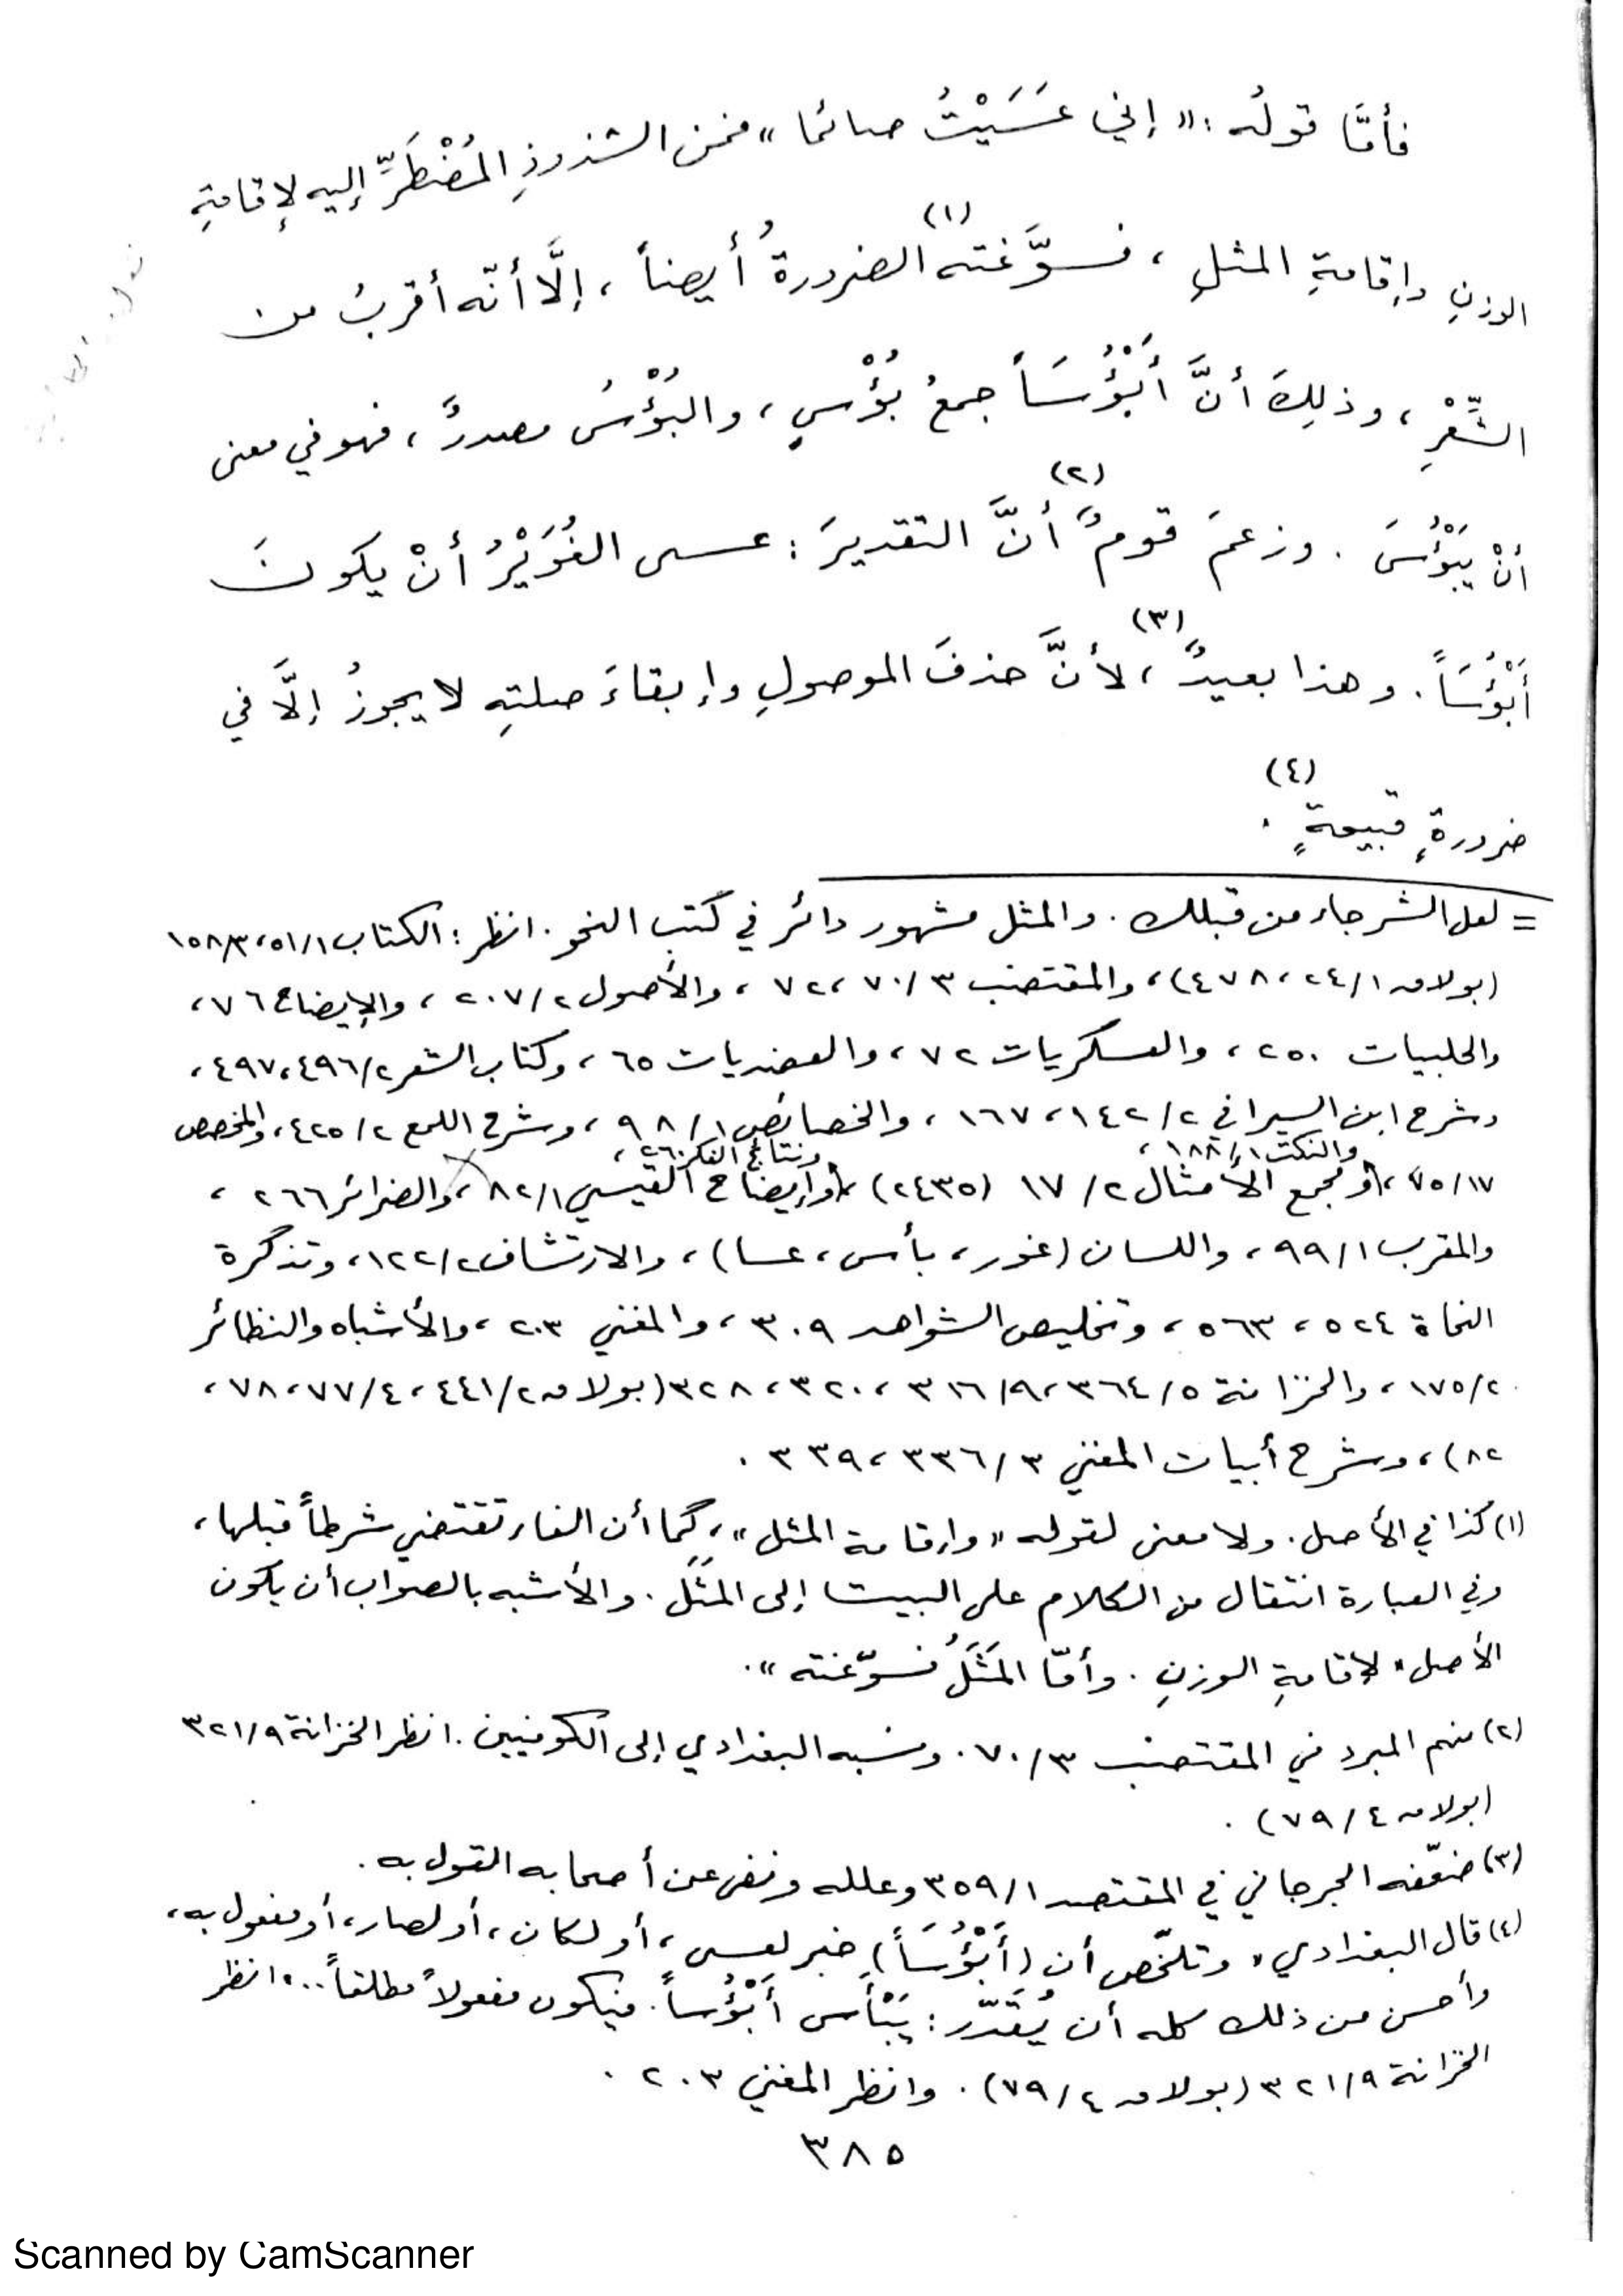 فأمَّا قولُه : « إني عَسَيْتُ صائما » فمن الشذوذِ المُضْطَرِّ إليه لإقامةِ
الوزنِ وإقامةِ المثلِ ، فسوَّغته(١) الضرورةُ أيضاً ، إلَّا أنّه أقربُ من
الشِّعْرِ ، وذلِكَ أنَّ أَبْؤُسَاً جمعُ بُؤْسٍ ، والبُؤْسُ مصدرٌ ، فهو في معنى
أنْ يَبْؤُسَ . وزعمَ قومٌ(٢) أنَّ التقديرَ : عسى الغُوَيْرُ أنْ يكونَ
أَبْؤُسَاً . وهذا بعيدٌ(٣) ، لأنَّ حذفَ الموصولِ وإبقاءَ صلتِه لا يجوزُ إلَّا في
ضرورةٍ قبيحةٍ(٤) .
= لعل الشر جاء من قبلك . والمثل مشهور دائر في كتب النحو . انظر : الكتاب ٥١/١، ١٥٨/٣
(بولاق ٢٤/١ ، ٤٧٨) ، والمقتضب ٧٠/٣ ، ٧٢ ، والأصول ٢٠٧/٢ ، والإيضاح ٧٦ ،
والحلبيات ٢٥٠ ، والعسكريات ٧٢ ، والعضديات ٦٥ ، وكتاب الشعر ٤٩٦/٢ ، ٤٩٧ ،
وشرح ابن السيرافي ١٤٢/٢ ، ١٦٧ ، والخصائص ٩٨/١ ، وشرح اللمع ٤٢٥/٢ ، والمخصص
والنكت ١٨٨/١ ، ونتائج الفكر ٢٦٠ ،
٧٥/١٧ ، ومجمع الأمثال ١٧/٢ (٢٤٣٥) ، وإيضاح القيسي ٨٢/١ ، والضرائر ٢٦٦ ،
والمقرب ٩٩/١ ، واللسان (غور ، بأس ، عسا) ، والارتشاف ١٢٢/٢ ، وتذكرة
النحاة ٥٢٤ ، ٥٦٣ ، وتخليص الشواهد ٣٠٩ ، والمغني ٢٠٣ ، والأشباه والنظائر
١٧٥/٢ ، والخزانة ٣٦٤/٥ ، ٣١٦/٩ ، ٣٢٠ ، ٣٢٨ (بولاق ٤٤١/٢ ، ٧٧/٤ ، ٧٨ ،
٨٢) ، وشرح أبيات المغني ٣٣٦/٣ ، ٣٣٩ .
(١) كذا في الأصل . ولا معنى لقوله « وإقامة المثل » ، كما أن الفاء تقتضي شرطاً قبلها ،
وفي العبارة انتقال من الكلام على البيت إلى المثَل . والأشبه بالصواب أن يكون
الأصل « لإقامةِ الوزنِ . وأمّا المَثَلُ فسوّغته » .
(٢) منهم المبرد في المقتضب ٧٠/٣ . ونسبه البغدادي إلى الكوفيين . انظر الخزانة ٣٢١/٩
(بولاق ٧٩/٤) .
(٣) ضعّفه الجرجاني في المقتصد ٣٥٩/١ وعلله ونفى عن أصحابه القول به .
(٤) قال البغدادي « وتلخّص أن (أَبْؤُسَاً) خبر لعسى ، أو لكان ، أو لصار ، أو مفعول به ،
وأحسن من ذلك كله أن يُقَدّر : يَبْأَس أَبْؤُساً . فيكون مفعولاً مطلقاً .. » انظر
الخزانة ٣٢١/٩ (بولاق ٧٩/٤) . وانظر المغني ٢٠٣ .
٣٨٥
Scanned by CamScanner